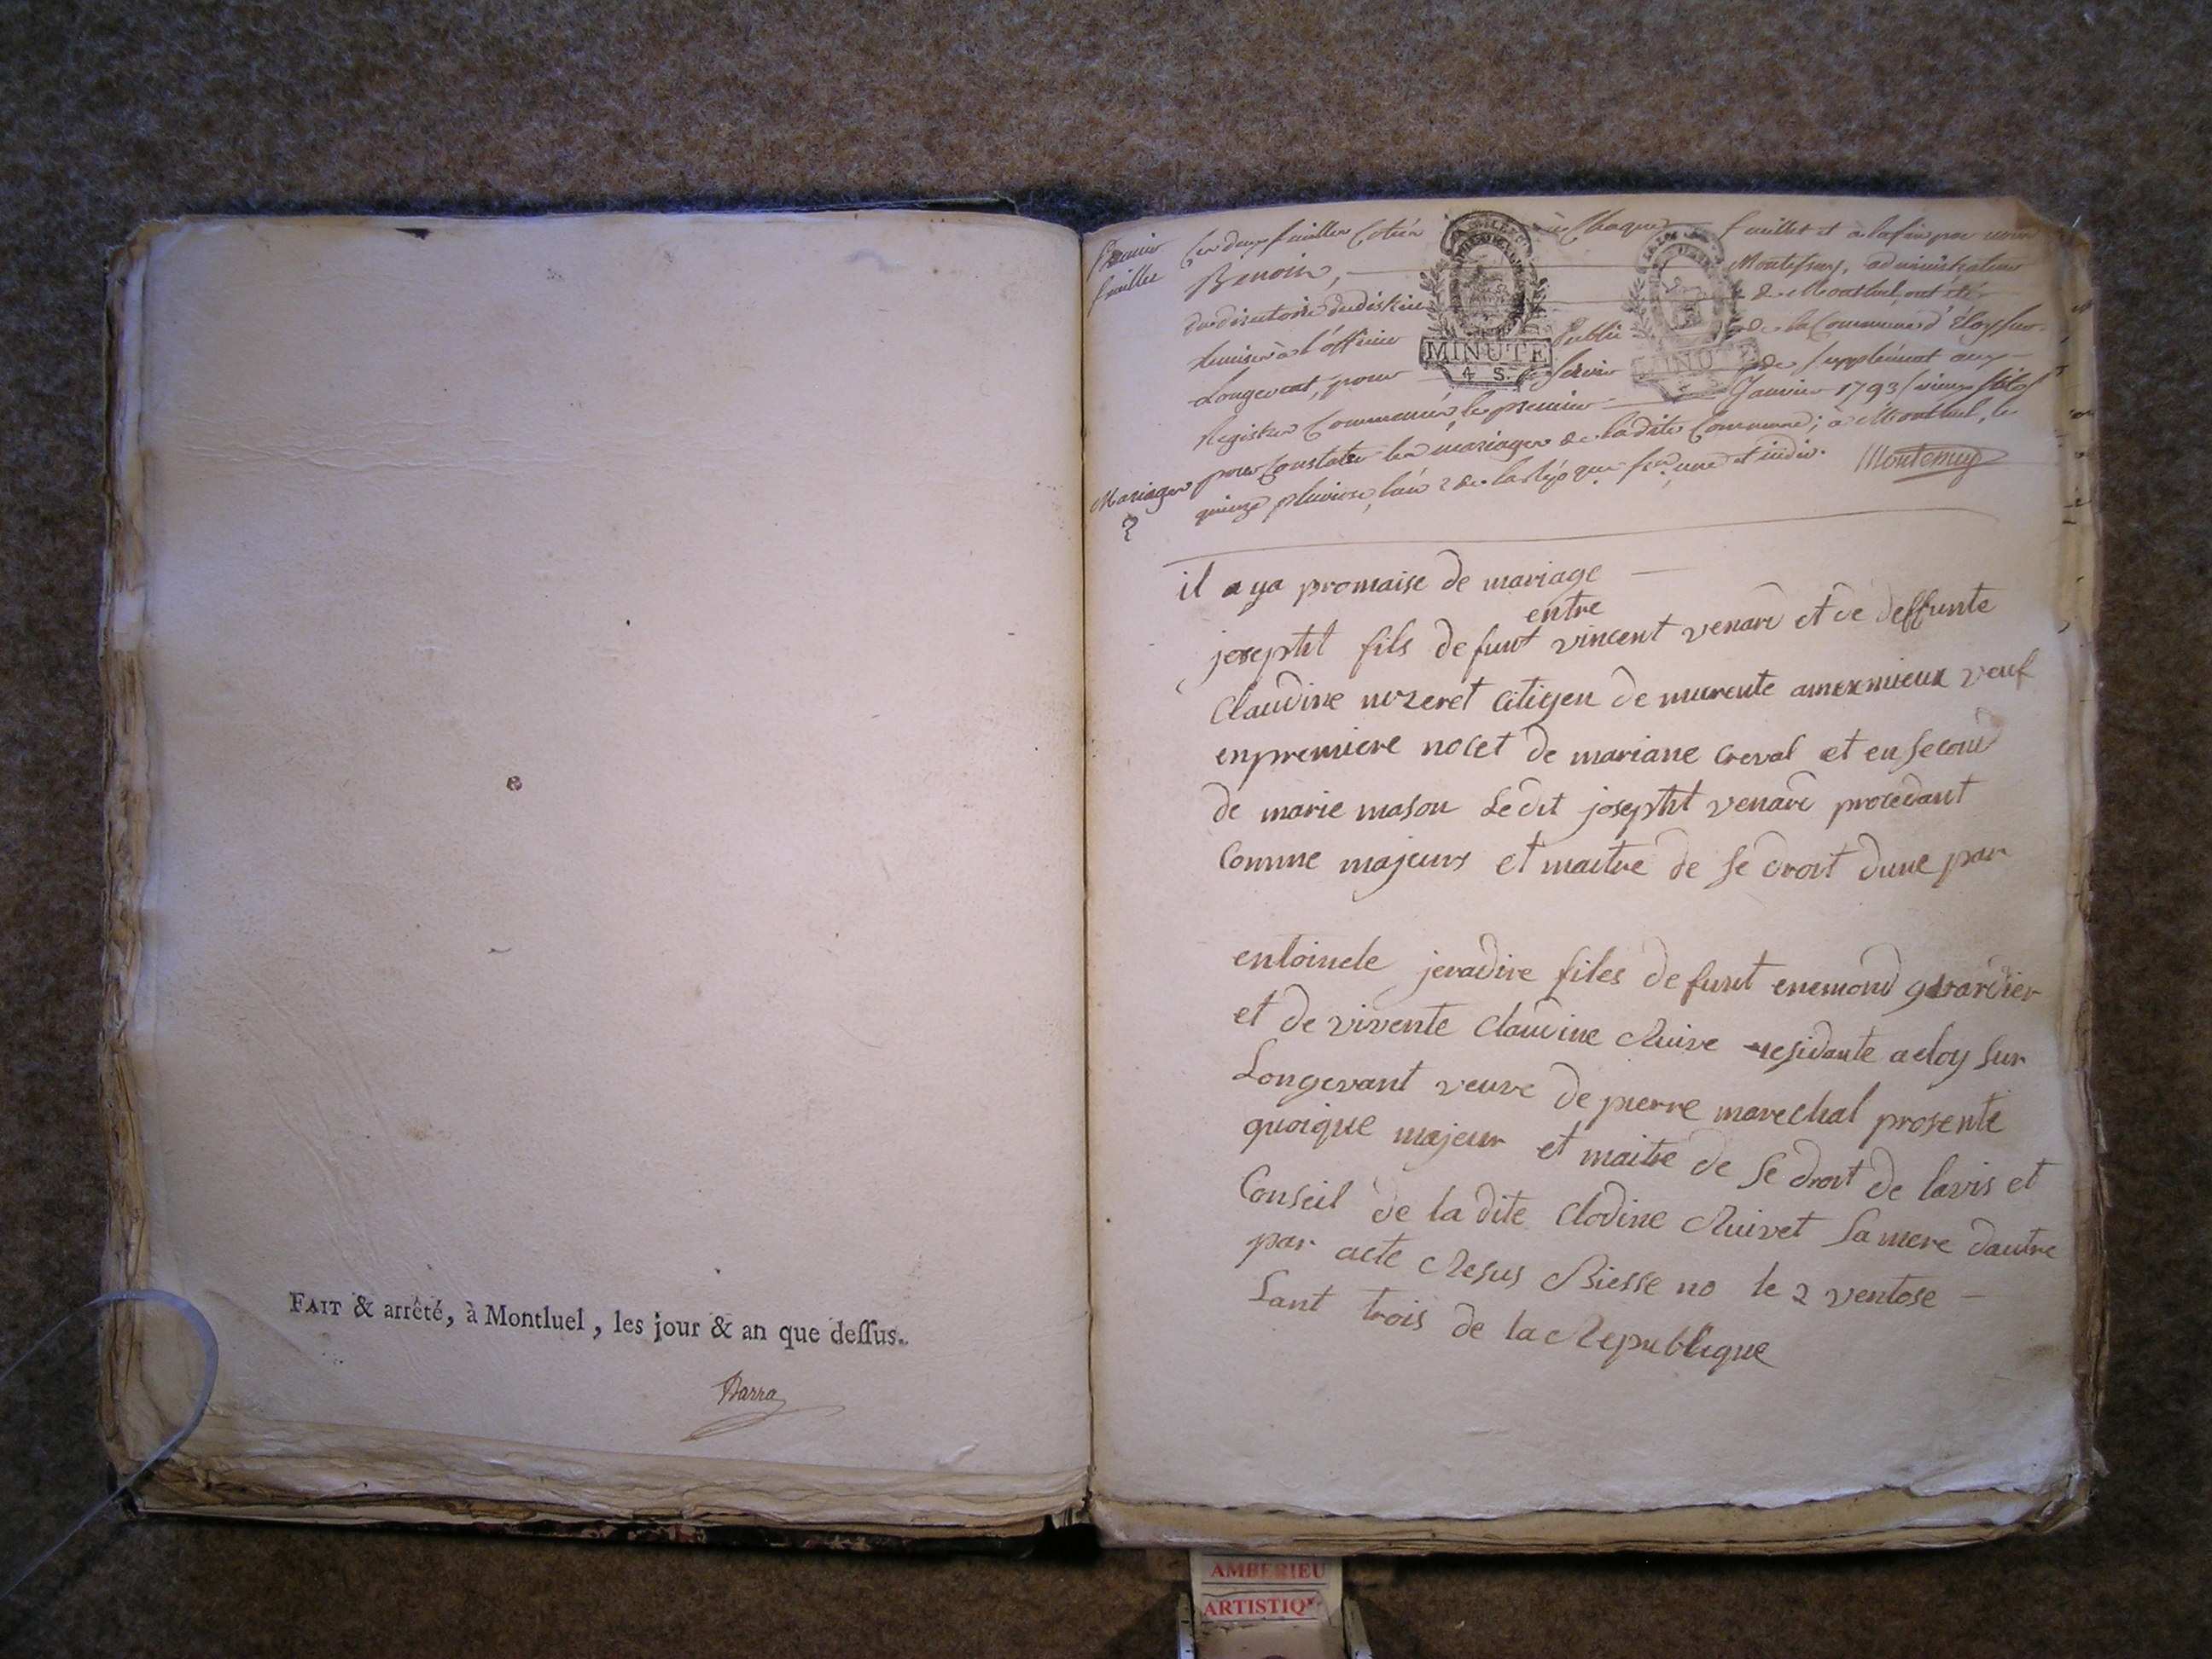 FAIT & arrêté, à Montluel, les jour & an que deſſus.
Barra
Premier
feuillet
Ces deux feuilles cotées à chaque feuillet et à la fin par nous
Benoir, Montessuy, administrateur
du directoire du district de Montluel, ont été
remises à l'officier Public de la Commune d'Eloy sur
Longevent, pour Servir de Supplément aux
Registres Commencés le premier Janvier 1793 vieux stile
pour Constater les mariages de ladite Commune; à Montluel, le
quinze pluviose, l'an 2 de la Rép. que fse. une et indiv. Montessuy
Mariages
2
MINUTE
4 S.
MINUTE
il a ya promaise de mariage
entre
josepht fils de funt vincent venard et de deffunte
Claudine nozeret Citiyen de murente amexmieux veuf
enpremiere nocet de mariane Creval et en Second
de marie mason Le dit josepht venard procedant
Comme majeurs et maitre de se droit dune par
entoinete jeradire files de funt enemond gerardier
et de vivente Claudine Ruive residante a eloy sur
Longevant veuve de pierre marechal prosente
quoique majeur et maitre de se droit de lavis et
Conseil de la dite Clodine Ruivet Sa mere dautre
par acte Resus Biesse no le 2 ventose
Lant trois de la Republique
AMBERIEU
ARTISTIQ